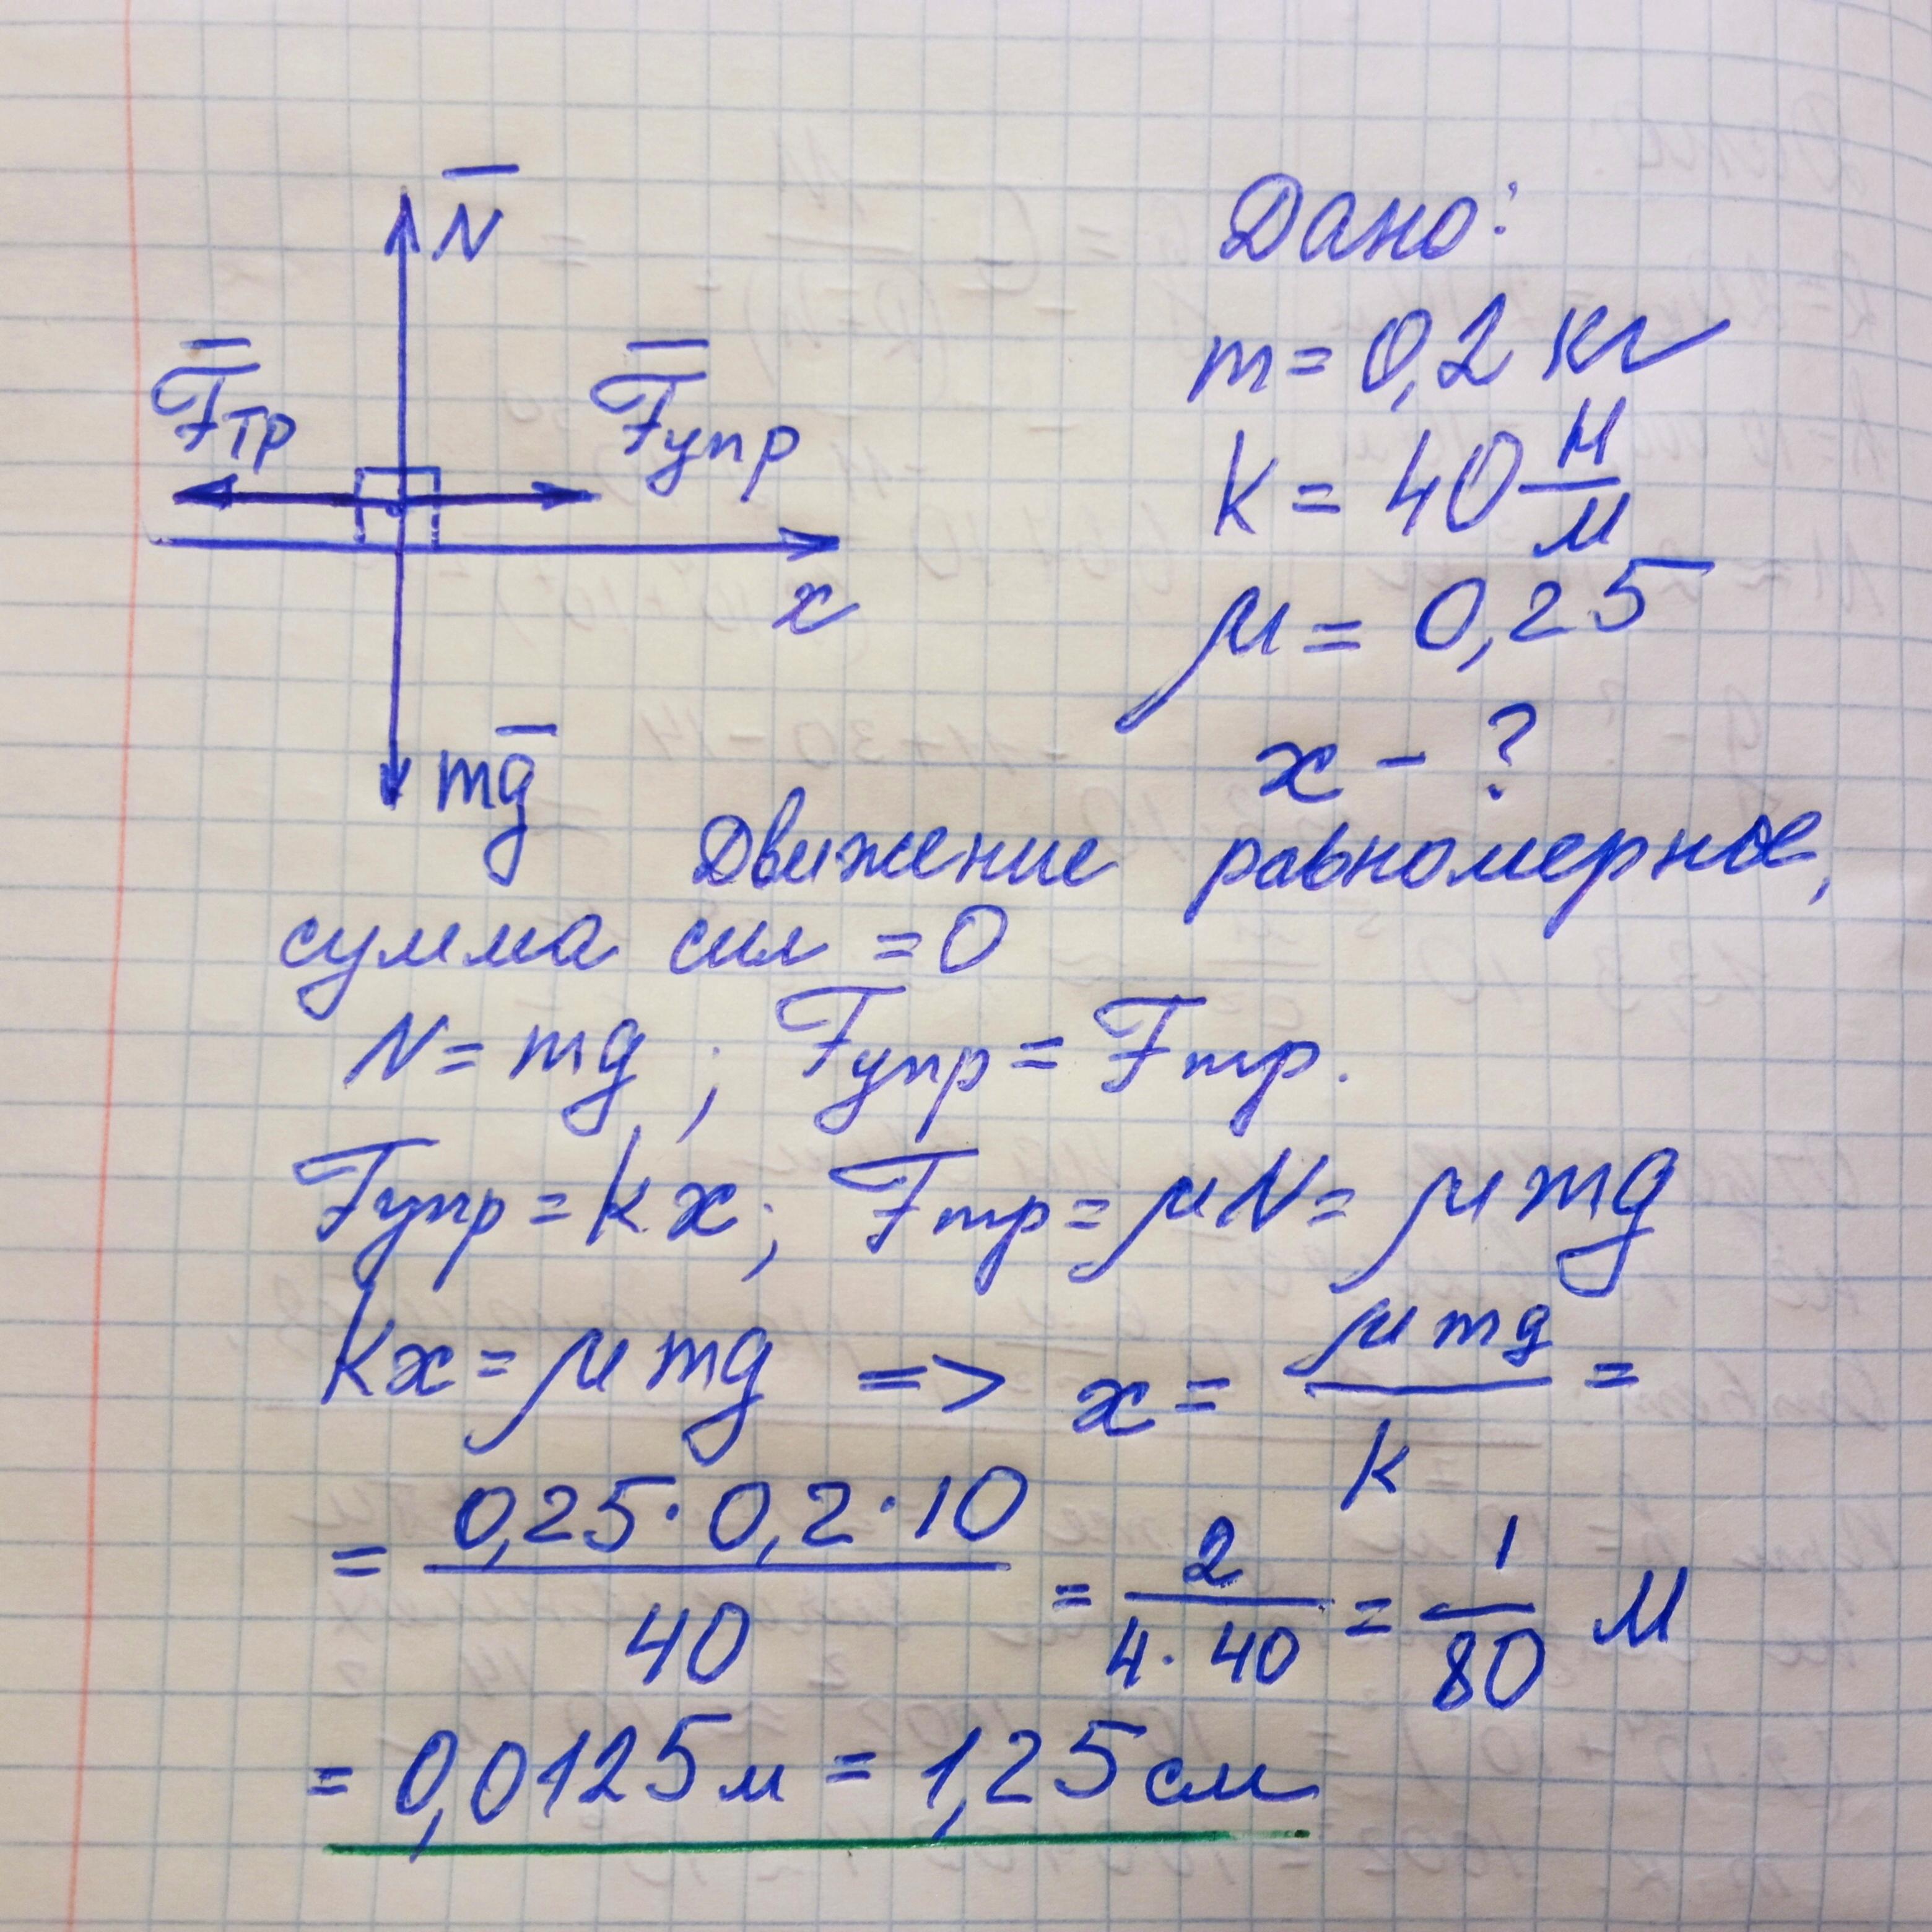 N̅
F̅тр
F̅упр
x
mg̅
Дано:
m = 0,2 кг
k = 40 Н/м
μ = 0,25
x - ?
Движение равномерное,
сумма сил = 0
N = mg ; Fупр = Fтр.
Fупр = kx ; Fтр = μN = μmg
kx = μmg => x = μmg/k =
= 0,25·0,2·10/40 = 2/4·40 = 1/80 м
= 0,0125 м = 1,25 см